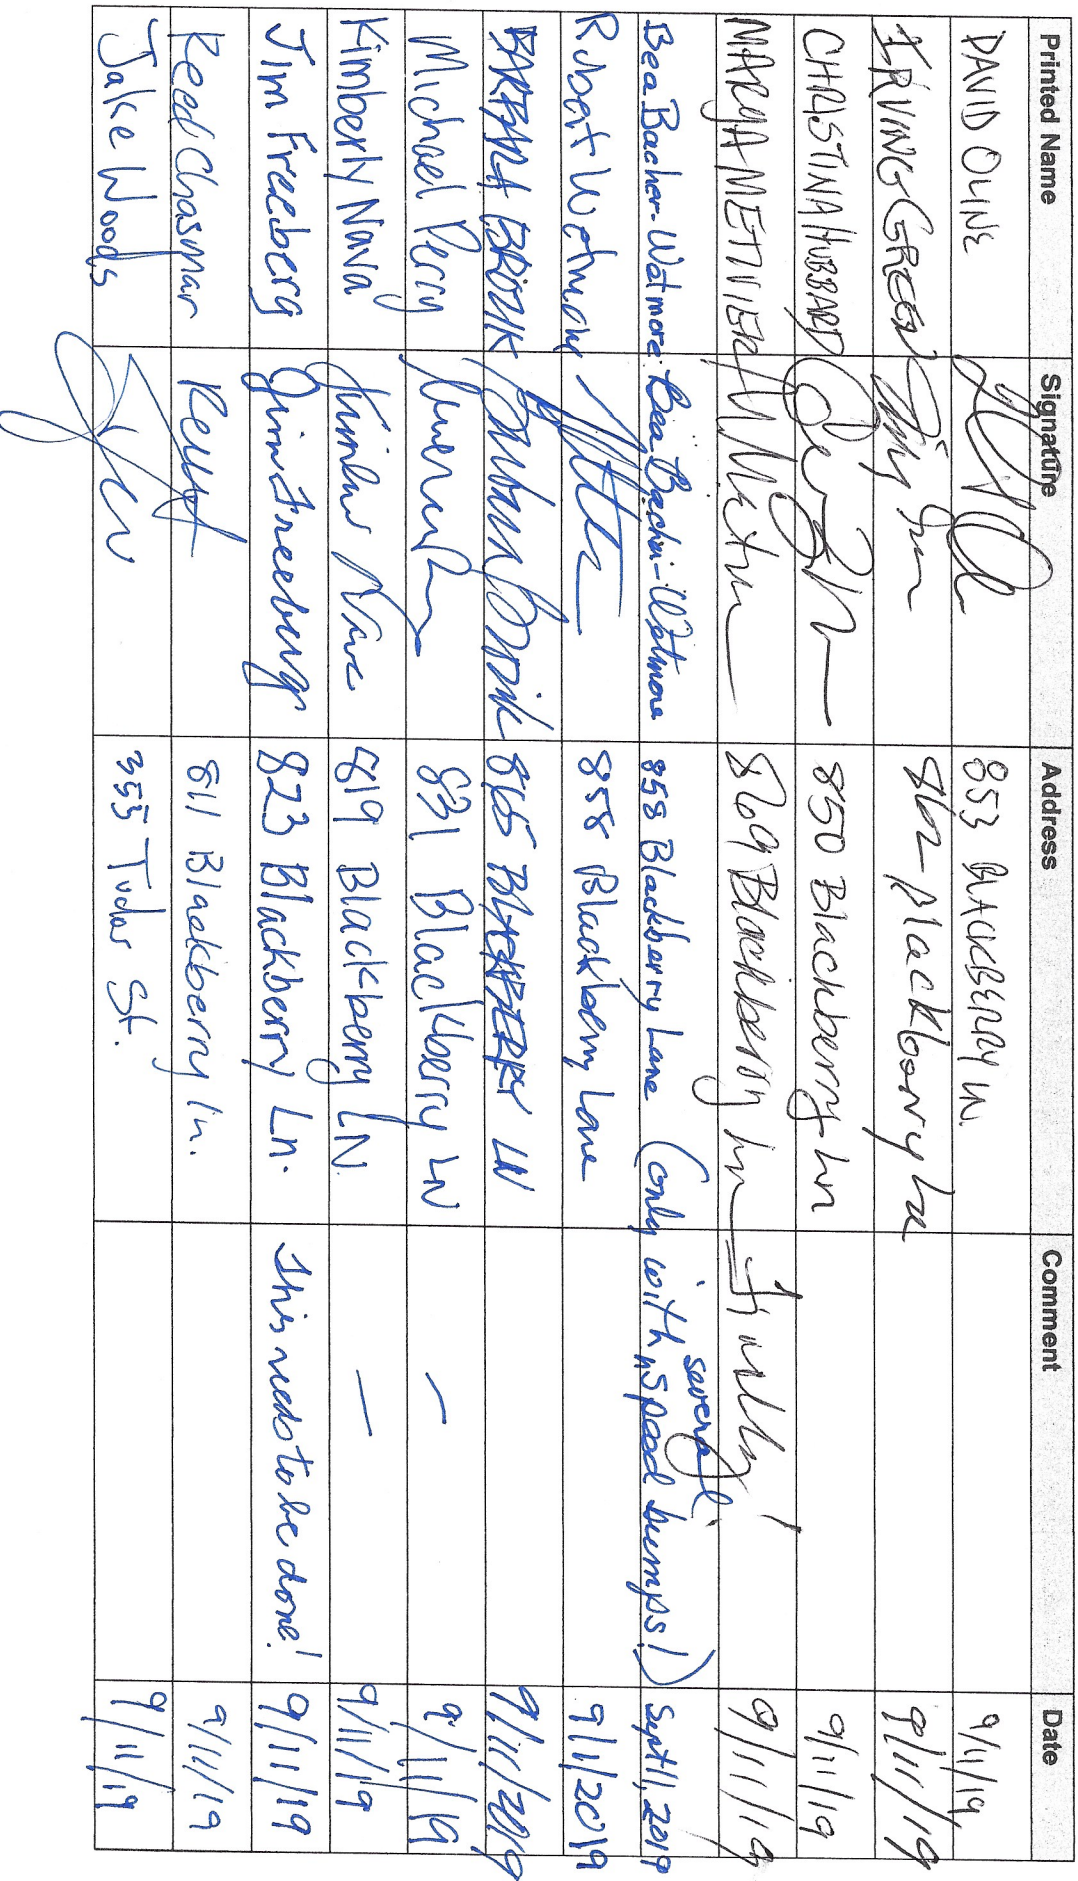 Printed Name Signature Address Comment Date
DAVID OLINE 853 BLACKBERRY LN. 9/11/19
IRVING GREEN 862 Blackberry Ln 9/11/19
CHRISTINA HUBBARD 850 Blackberry Ln 9/11/19
MARYA METIVIER 869 Blackberry Ln Finally! 9/11/19
Bea Bacher-Wetmore Bea Bacher-Wetmore 858 Blackberry Lane (only with several speed bumps!) Sept 11, 2019
Robert Wetmore 858 Blackberry Lane 9/11/2019
BARBARA BROZIK Barbara Brozik 865 BLACKBERRY LN 9/11/2019
Michael Perry 831 Blackberry LN — 9/11/19
Kimberly Nava 819 Blackberry LN. — 9/11/19
Jim Freeberg Jim Freeberg 823 Blackberry Ln. This needs to be done! 9/11/19
Reed Chasmar 811 Blackberry ln. 9/11/19
Jake Woods 355 Tudor St. 9/11/19